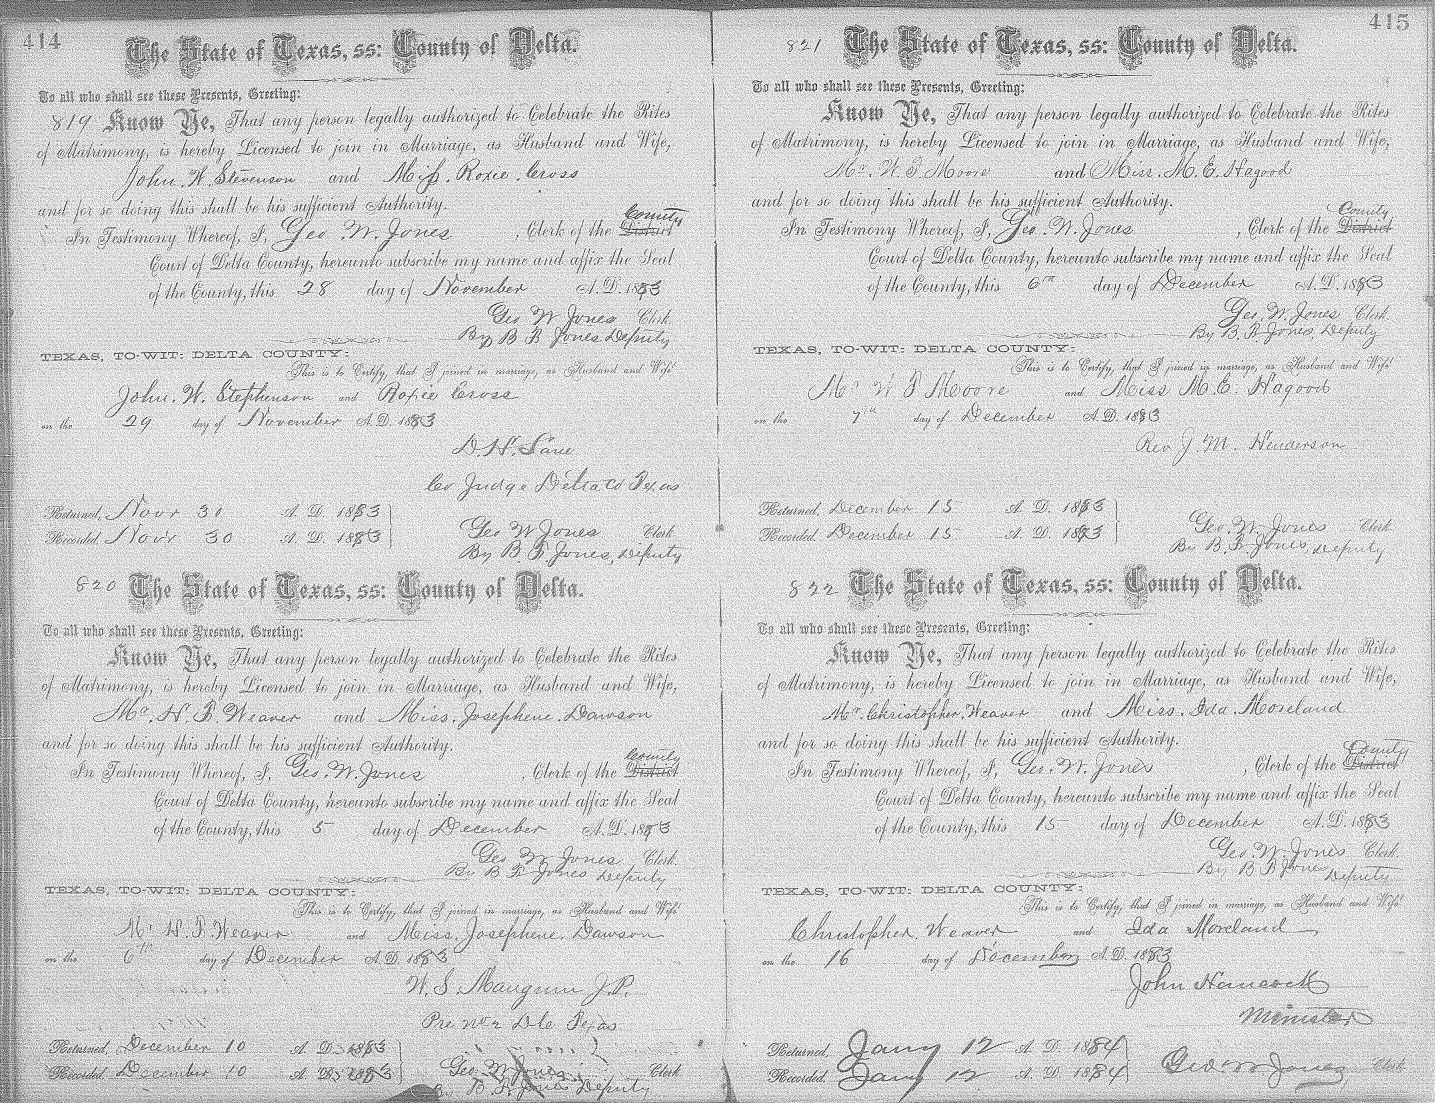 414
The State of Texas, ss: County of Delta.
To all who shall see these Presents, Greeting:
819 Know Ye, That any person legally authorized to Celebrate the Rites
of Matrimony, is hereby Licensed to join in Marriage, as Husband and Wife,
John. W. Stevenson and Miss. Roxie. Cross
and for so doing this shall be his sufficient Authority.
County
In Testimony Whereof, I, Geo. W. Jones, Clerk of the District
Court of Delta County, hereunto subscribe my name and affix the Seal
of the County, this 28 day of November A.D. 1883
Geo W Jones Clerk.
By B F Jones Deputy
TEXAS, TO-WIT: DELTA COUNTY:
This is to Certify, that I joined in marriage, as Husband and Wife
John. W. Stephenson and Roxie Cross
on the 29 day of November A.D. 1883
D. H. Lane
Co Judge Delta Co Texas
Returned, Novr 30 A. D. 1883
Recorded. Novr 30 A. D. 1883
Geo W Jones Clerk
By B F Jones, Deputy
820 The State of Texas, ss: County of Delta.
To all who shall see these Presents, Greeting:
Know Ye, That any person legally authorized to Celebrate the Rites
of Matrimony, is hereby Licensed to join in Marriage, as Husband and Wife,
Mr. H. F. Weaver and Miss. Josephene. Dawson
and for so doing this shall be his sufficient Authority.
County
In Testimony Whereof, I, Geo. W. Jones, Clerk of the District
Court of Delta County, hereunto subscribe my name and affix the Seal
of the County, this 5 day of December A.D. 1883
Geo W Jones Clerk.
By B F Jones Deputy
TEXAS, TO-WIT: DELTA COUNTY:
This is to Certify, that I joined in marriage, as Husband and Wife
Mr H. F. Weaver and Miss. Josephene. Dawson
on the 6th day of December A.D. 1883
W. S. Mangrum J.P.
Texas
Returned, December 10 A. D. 1883
Recorded. December 10 A. D. 1883
Geo W Jones Clerk
By B F Jones Deputy
415
821 The State of Texas, ss: County of Delta.
To all who shall see these Presents, Greeting:
Know Ye, That any person legally authorized to Celebrate the Rites
of Matrimony, is hereby Licensed to join in Marriage, as Husband and Wife,
Mr. W. F. Moore and Miss. M. E. Hagood
and for so doing this shall be his sufficient Authority.
County
In Testimony Whereof, I, Geo. W. Jones, Clerk of the District
Court of Delta County, hereunto subscribe my name and affix the Seal
of the County, this 6th day of December A.D. 1883
Geo. W. Jones Clerk.
By B. F. Jones, Deputy
TEXAS, TO-WIT: DELTA COUNTY:
This is to Certify, that I joined in marriage, as Husband and Wife
Mr W F Moore and Miss M. E. Hagood
on the 7th day of December A.D. 1883
Rev J. M. Henderson
Returned, December 15 A. D. 1883
Recorded. December 15 A. D. 1883
Geo. W. Jones Clerk
By B. F. Jones, Deputy
822 The State of Texas, ss: County of Delta.
To all who shall see these Presents, Greeting:
Know Ye, That any person legally authorized to Celebrate the Rites
of Matrimony, is hereby Licensed to join in Marriage, as Husband and Wife,
Mr. Christopher. Weaver and Miss. Ida. Moreland
and for so doing this shall be his sufficient Authority.
County
In Testimony Whereof, I, Geo. W. Jones, Clerk of the District
Court of Delta County, hereunto subscribe my name and affix the Seal
of the County, this 15 day of December A.D. 1883
Geo. W. Jones Clerk.
By B F Jones Deputy
TEXAS, TO-WIT: DELTA COUNTY:
This is to Certify, that I joined in marriage, as Husband and Wife
Christopher. Weaver and Ida Moreland
on the 16 day of December A.D. 1883
John Hancock
Minister
Returned, Jany 12 A. D. 1884
Recorded. Jany 12 A. D. 1884
Geo W Jones Clerk